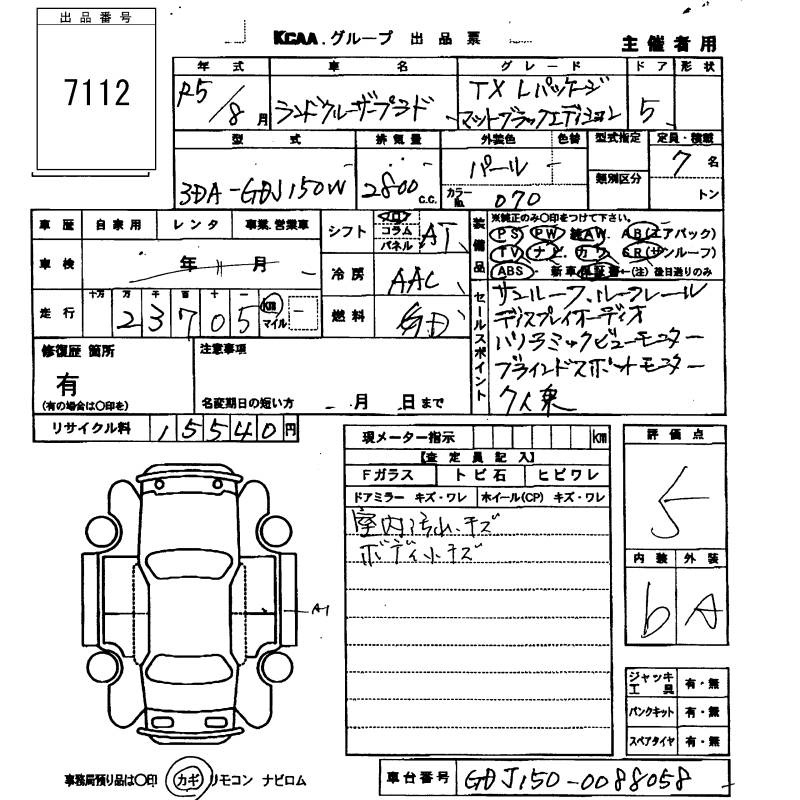 出品番号
7112
KCAA.グループ 出品票
主催者用
年式 車名 グレード ドア 形状
R5/8月 ランドクルーザープラド TX Lパッケージ マットブラックエディション 5
型式 排気量 外装色 色替 型式指定 定員・積載
3DA-GDJ150W 2800c.c. パール - 7名
カラーNo. 070 類別区分 トン
車歴 自家用 レンタ 事業.営業車
シフト コラム パネル AT
車検 年 月
冷房 AAC
走行 十万 万 千 百 十 一 km マイル
23705 -
燃料
装備品 ※純正のみ○印をつけて下さい。
PS PW AW. AB(エアバッグ)
TV ナビ. カワ SR(サンルーフ)
ABS. 新車保証書←(注)後日送りのみ
セールスポイント サンルーフ、ルーフレール
ディスプレイオーディオ
パノラミックビューモニター
ブラインドスポットモニター
7人乗
修復歴 箇所
有
(有の場合は○印を)
注意事項
名変期日の短い方 月 日まで
リサイクル料 15540円
現メーター指示 km
【査定員記入】
Fガラス トビ石 ヒビワレ
ドアミラー キズ・ワレ ホイール(CP) キズ・ワレ
室内汚れ、キズ
ボディ小キズ
評価点
5
内装 外装
b A
A1
ジャッキ工具 有・無
パンクキット 有・無
スペアタイヤ 有・無
事務局預り品は○印 カギ リモコン ナビロム
車台番号 GDJ150-0088058